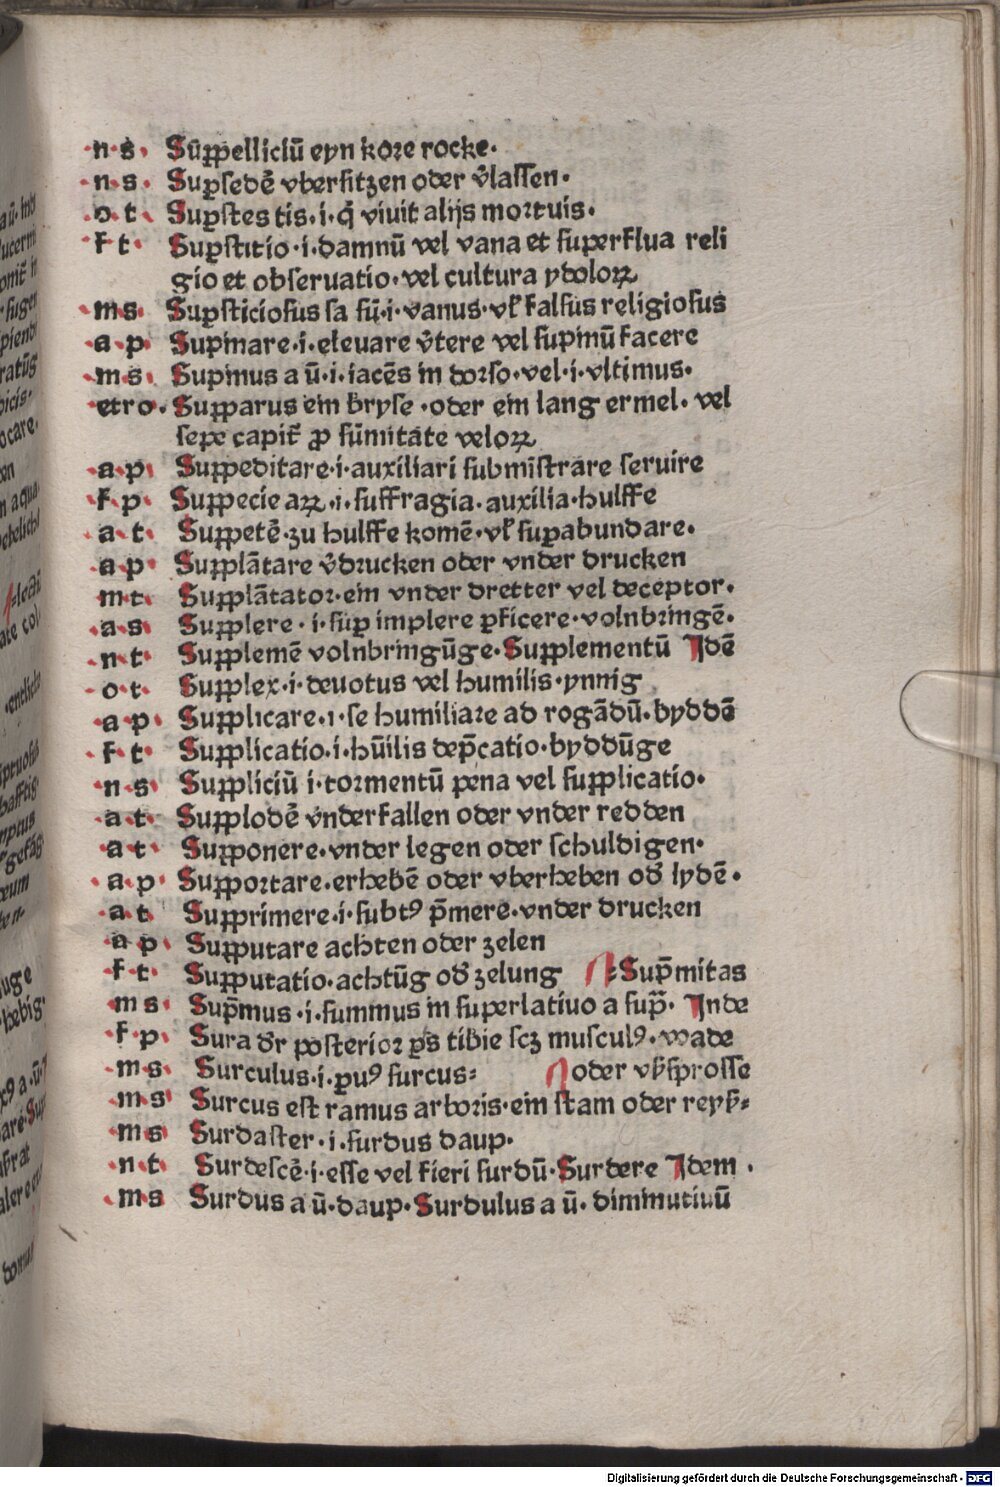 ·n·s· Sūꝑpelliciū eyn kore rocke·
·n·s· Suꝑsedē vbersitzen oder v̄lassen·
·o·t· Suꝑstes tis·i·q̄ viuit alijs mortuis·
·f·t· Suꝑstitio·i·damnū vel vana et superflua reli
gio et obseruatio·vel cultura ydoloꝝ
·m·s· Suꝑsticiosus sa sū·i·vanus·vł falsus religiosus
·a·p· Supinare·i·eleuare v̄tere vel supinū facere
·m·s· Supinus a ū·i·iacēs in dorso·vel·i·vltimus·
·etro· Suꝑparus ein bryse·oder ein lang ermel·vel
sepe capit̄ ꝓ sūmitate veloꝝ
·a·p· Suppeditare·i·auxiliari submistrare seruire
·f·p· Suppecie aꝝ·i·suffragia·auxilia·hulffe
·a·t· Suppetē·zu hulffe komē·vł suꝑabundare·
·a·p· Supplātare v̄drucken oder vnder drucken
m·t· Supplātator·ein vnder dretter vel deceptor·
·a·s· Supplere·i·suꝑ implere ꝑficere·volnbringē·
·n·t· Supplemē volnbringūge·Supplementū Idē
·o·t· Supplex·i·deuotus vel humilis·ynnig
·a·p· Supplicare·i·se humiliare ad rogādū·byddē
·f·t· Supplicatio·i·hūilis dep̄catio·byddūge
·n·s· Suppliciū i·tormentū pena vel supplicatio·
·a·t· Supplodē v̄nderfallen oder vnder redden
·a·t· Supponere·vnder legen oder schuldigen·
·a·p· Supportare·erhebē oder vberheben od̄ lydē·
·a·t· Supprimere·i·subtꝰ p̄mere·vnder drucken
·a·p· Supputare achten oder zelen
·f·t· Supputatio·achtūg od̄ zelung Sup̄mitas
·m·s· Sup̄mus·i·summus in superlatiuo a sup̄·Inde
·f·p· Sura d̄r posterior ꝑs tibie scꝫ musculꝰ·wade
·m·s· Surculus·i·ꝑuꝰ surcus⸗ oder vb̄sprosse
·m·s· Surcus est ramus arboris·ein stam oder reyb̄⸗
·m·s· Surdaster·i·surdus daup·
·n·t· Surdescē·i·esse vel fieri surdū·Surdere Idem·
·m·s Surdus a ū·daup·Surdulus a ū·diminutiuū
Digitalisierung gefördert durch die Deutsche Forschungsgemeinschaft - DFG